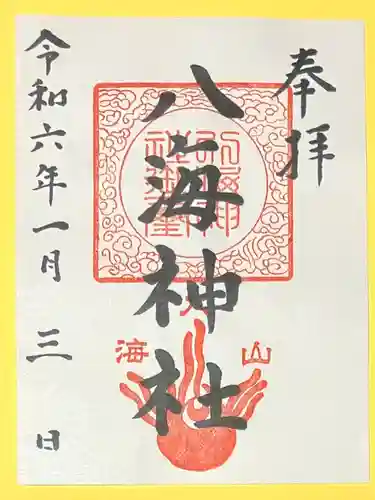 奉拝
八海神社
令和六年一月三日
山
海